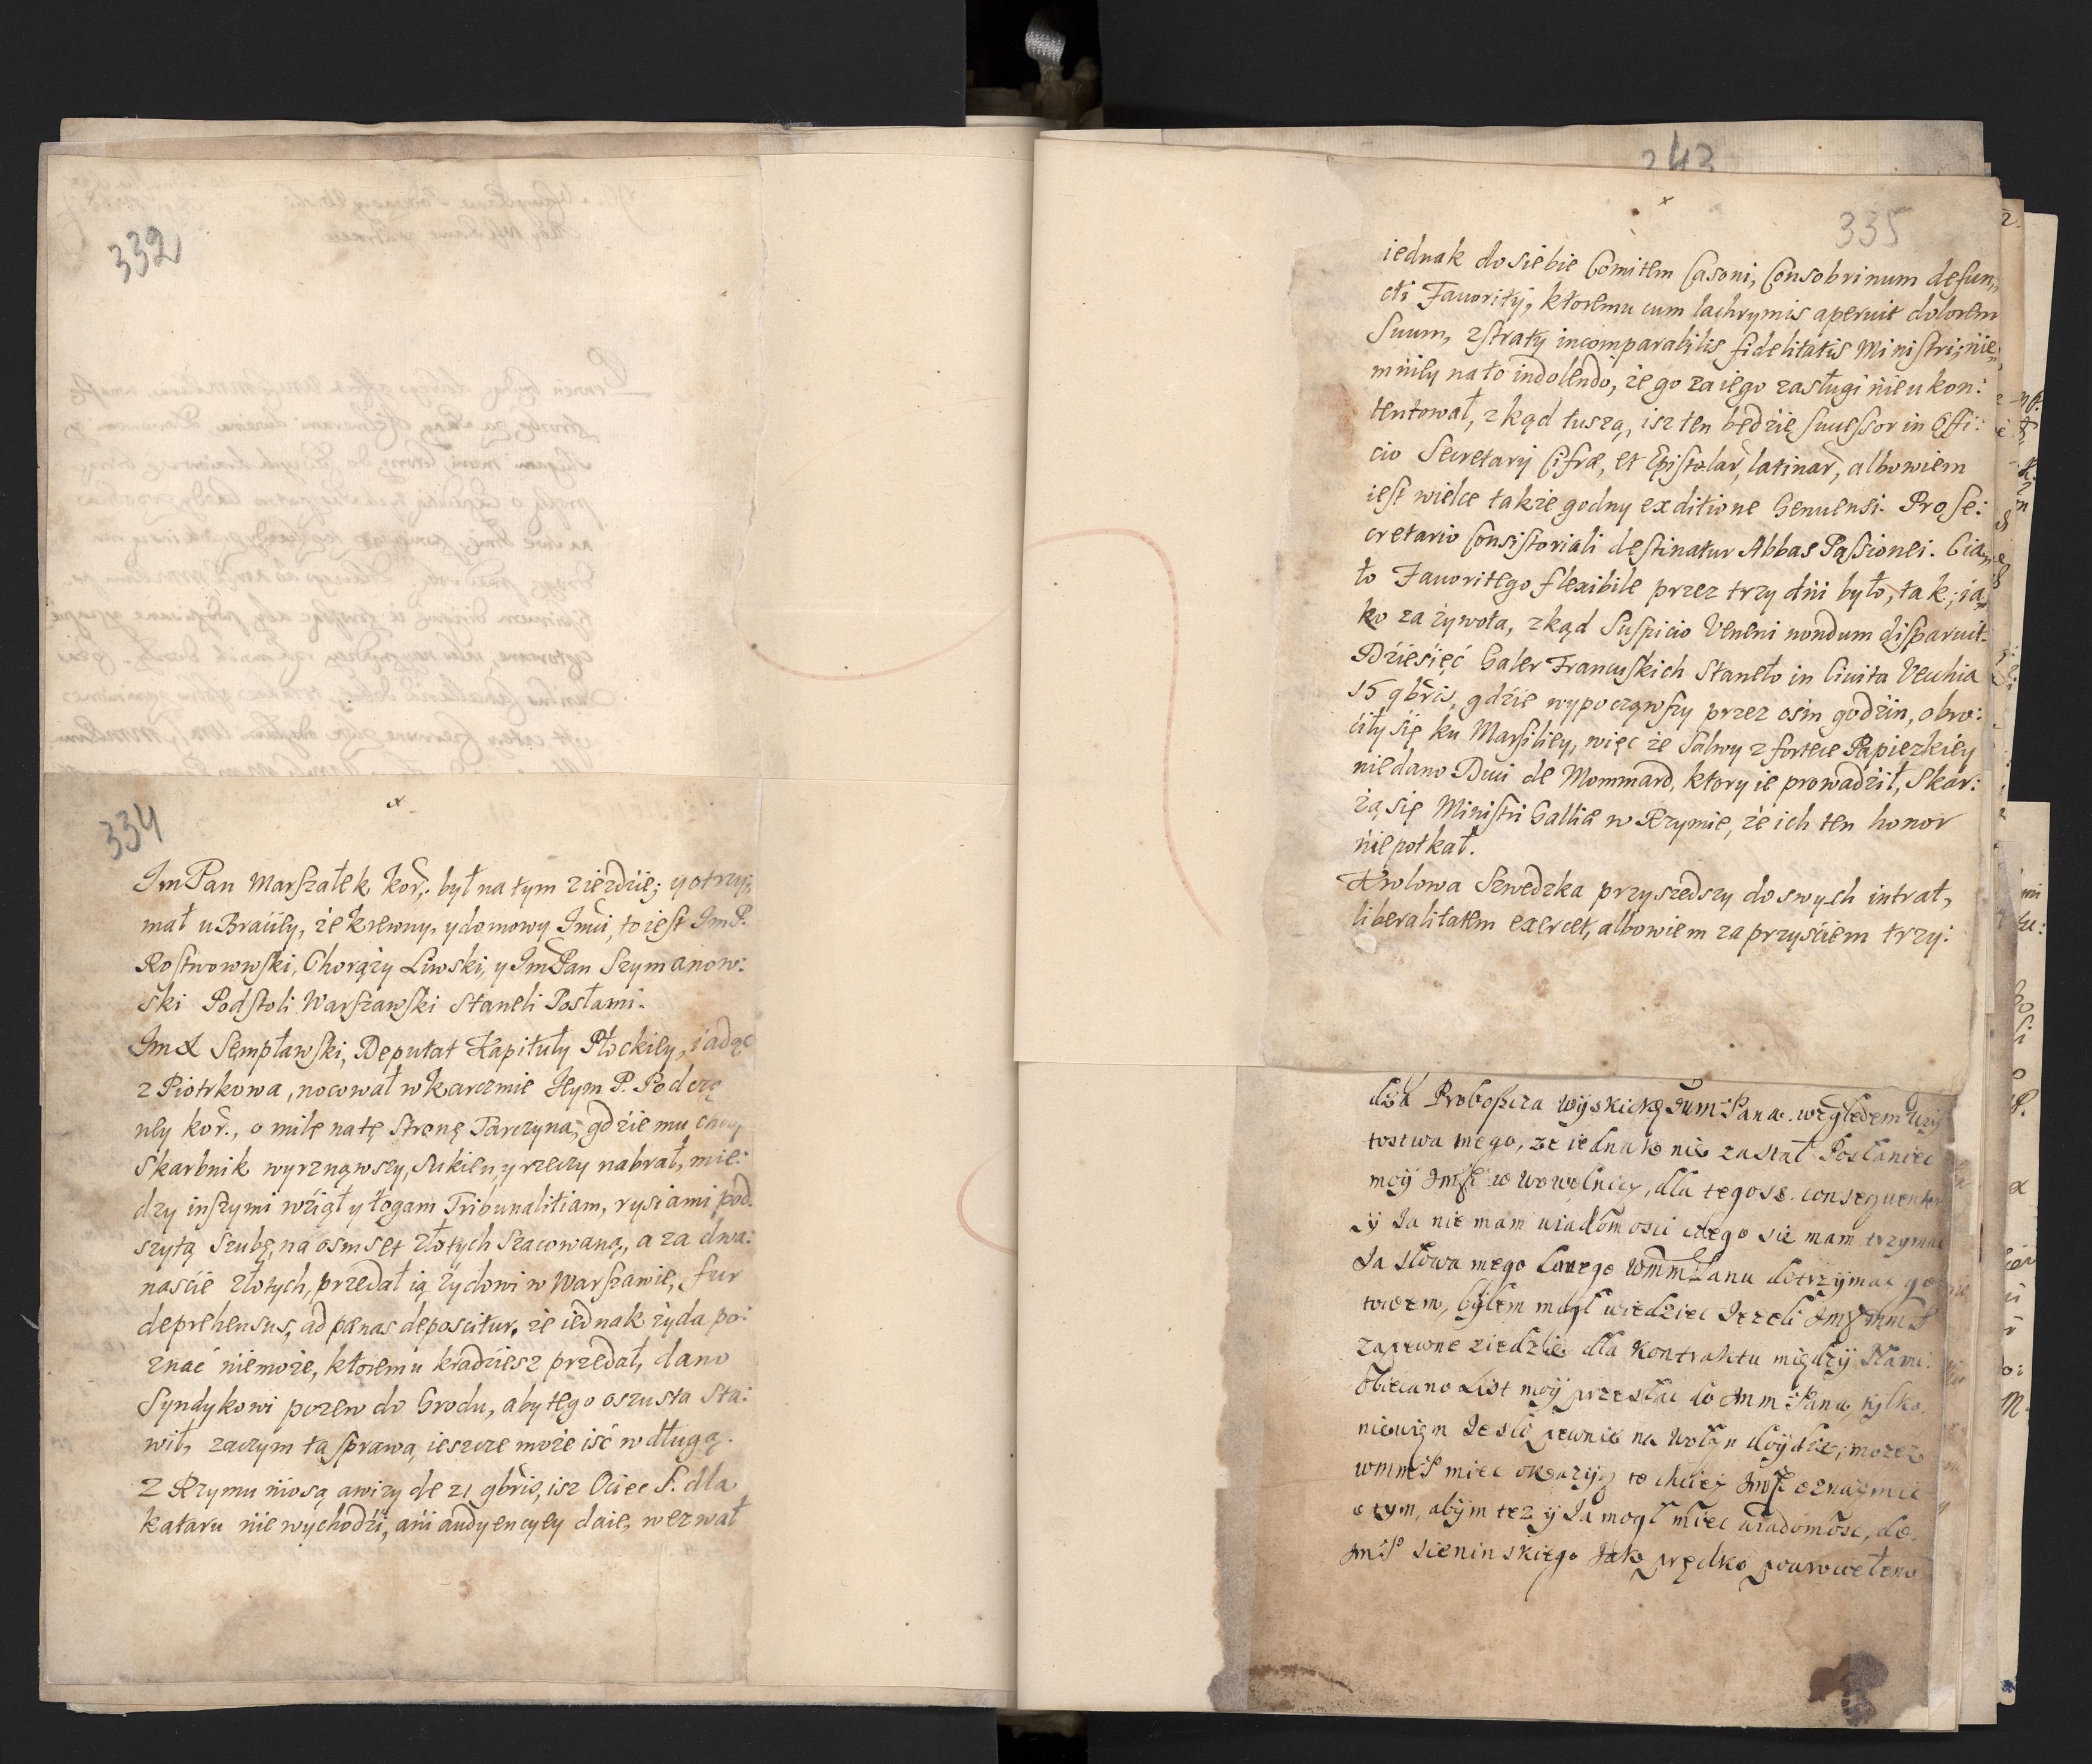 332
334
x
Im Pan Marszałek kor: był na tym zieździe; y otrzy:
mał u Braciiey, że krewny, y domowy Imci, to iest ImP.
Rostworowski, Chorąży Liwski, y Im Pan Szymanow:
ski Podstoli Warszawski staneli Posłami.
Im X Sempławski, Deputat Kapituły Płockiey, iadąc
z Piotrkowa, nocował w karczmie Iłym P. Podcza
ney kor., o milę na tę stronę Tarczyna, gdzie mu
Skarbnik wyrznąwszy, sukien, y rzeczy nabrał, mie:
dzy inszymi wziął y togam Tribunalitiam, rysiami pod:
szytą szubę, na osmset złotych szacowaną, a za dwa:
nascie złotych, przedał ią żydowi w Warszawie, fur
deprehensus, ad pœnas deposcitur, że iednak żyda po:
znać niemoże, ktoremu kradziesz przedał, dano
Syndykowi pozew do Grodu, aby tego oszusta sta:
wił, zaczym ta sprawa, ieszcze może iść w długą.
Z Rzymu niosą awizy de 21 9bris, isz Ociec S. dla
kataru nie wychodzi, ani audyencyey daie, wezwał
243
335
x
iednak do siebie Comitem Casoni, Consobrinum defun,,
cti Fauority, ktoremu cum lachrymis aperuit dolorem
suum, z straty incomparabilis fidelitatis Ministri; nie,,
mniey na to indolendo, że go za iego zasługi nie ukon:
tentował, zkąd tuszą, isz ten będzie successor in Offi:
cio Secretarij Cifræ, et Epistolar, latinar, albowiem
iest wielce także godny ex ditione Genuensi. Pro Se:
cretario Consistoriali destinatur Abbas Passionei. Cia,,
ło Fauoritego flexibile przez trzy dni było, tak, ia,,
ko za żywota, zkąd suspicio veneni nondum disparuit.
Dziesięć Galer Francuskich staneło in Ciuita Vecchia
15 9bris, gdzie wypocząwszy przez osm godzin, obro:
ciły się ku Marsiliey, więc że salwy z fortece Papiezkiey
niedano Duci de Mommard, ktory ie prowadził, skar:
żą się Ministri Galliæ w Rzymie, że ich ten honor
nie potkał.
Krolowa Szwedzka przyszedszy do swych intrat,
liberalitatem exercet, albowiem za przysciem trzy:
dza Proboszcza wyskickę Jum Pana. względem
tostwa mego, ze iednak nie zastał Posłaniec
moy w Wowolnicy, dla tegosz. consequenter
y Ja nie mam wiadomosci czego sie mam trzymac
Ja słowa mego danego WmmPanu dotrzymac
towem, bylem mogł wiedziec Jezeli
zapewne ziedzie dla Kontraktu między Nami.
Obiecano List moy przesłac do Panu, tylko.
niewiem Jesli pewnie na Wołyn doydzie, mozez
miec okazyią to chciey oznaymic
o tym, abym tez y Ja mogł miec wiadomosc, do.
Sieninskiego Jako prędko